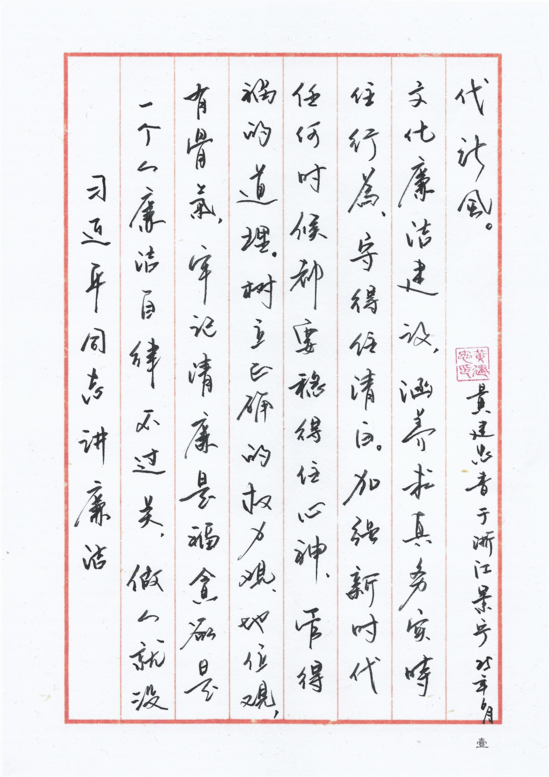 习近平同志讲廉洁
一个人廉洁自律不过关，做人就没
有骨氣，牢记清廉是福貪欲是
祸的道理。树立正确的权力观、地位观，
任何时候都要稳得住心神、管得
住行為、守得住清白。加强新时代
文化廉洁建设，涵养求真务实時
代新風。
黄建忠书于浙江景宁25年6月
壹